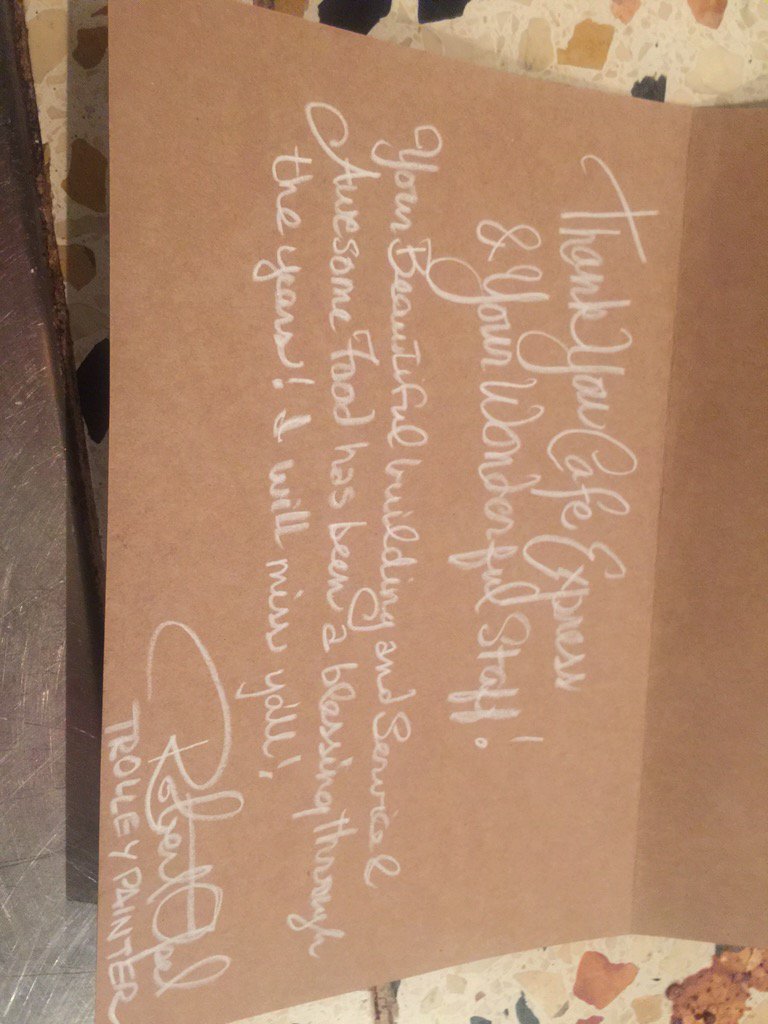 Thank You Cafe Express
& Your Wonderful Staff!
Your Beautiful building and Service &
Awesome Food has been a blessing through
the years! I will miss y'all!
Robert
TROLLEY PAINTER